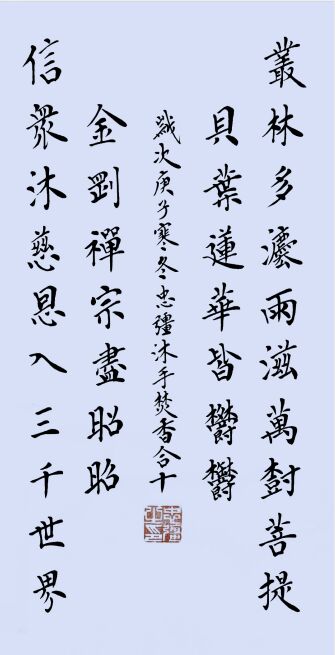 叢林多灋雨滋萬樹菩提
貝葉蓮華皆欝欝
歲次庚子寒冬忠疆沐手焚香合十
金剛禪宗盡昭昭
信眾沐慈恩入三千世界